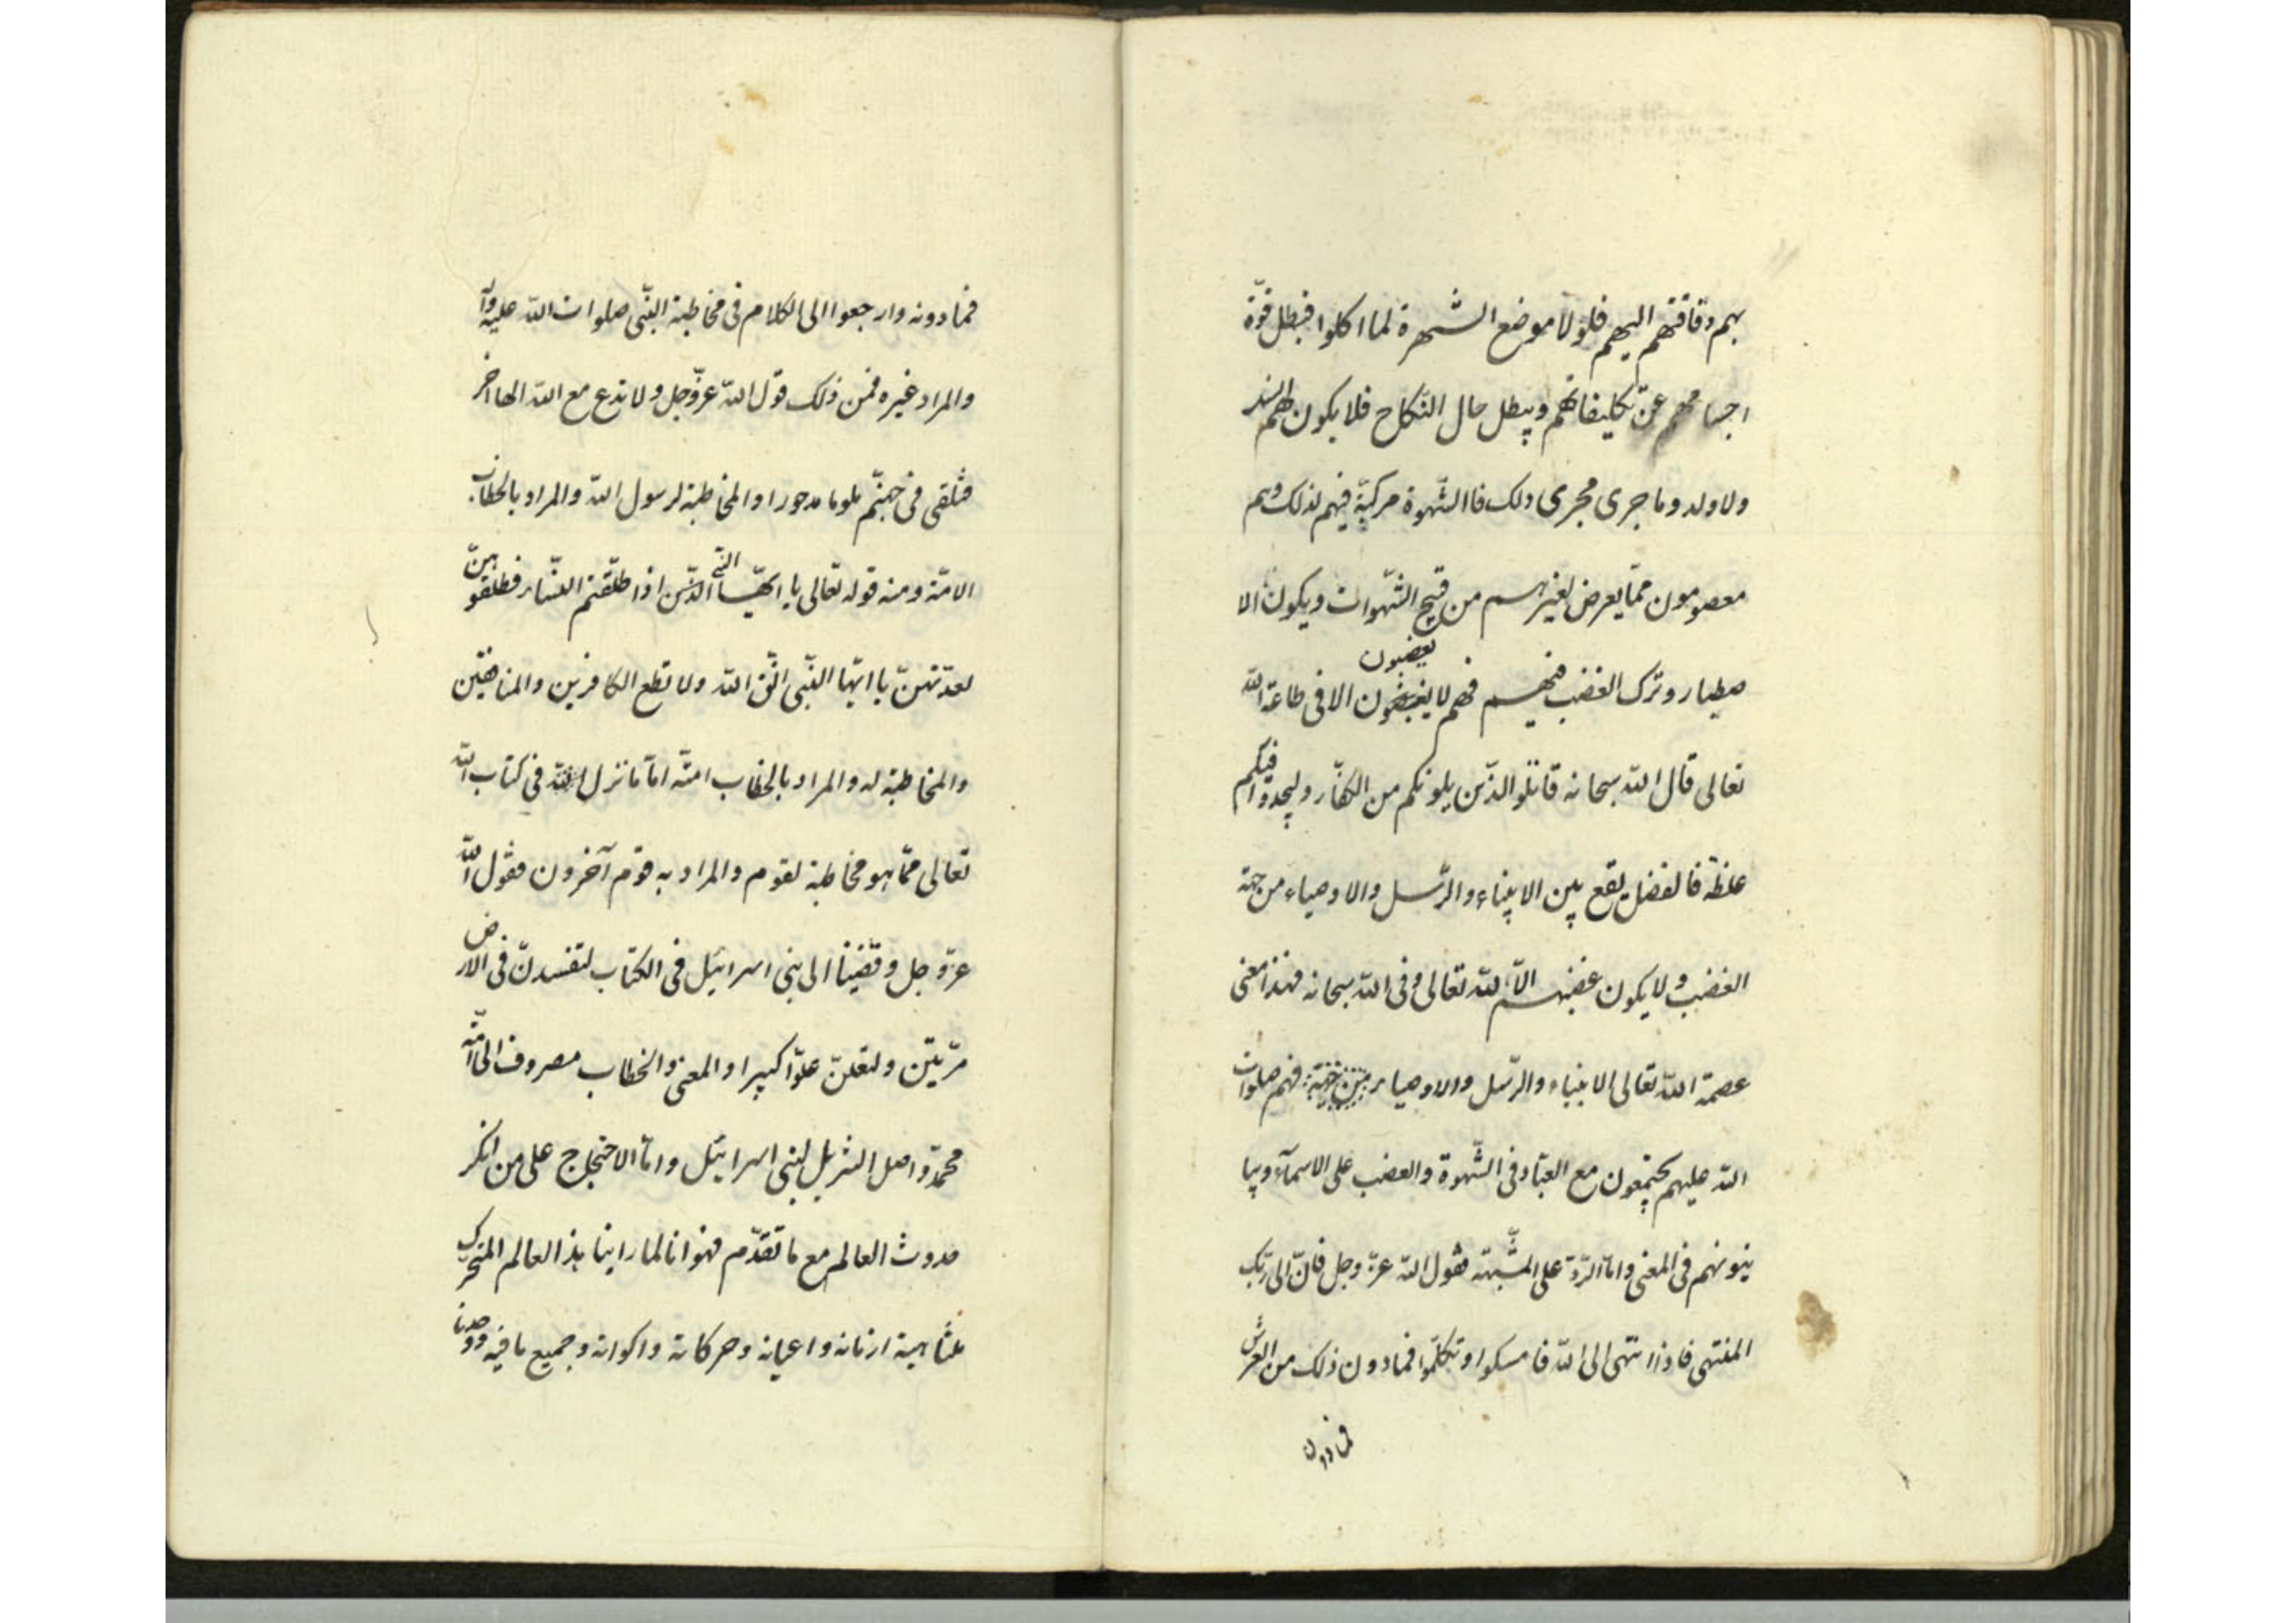 بهم وفاقتهم اليهم فلولا موضع الشهرة لما اكلوا فبطل قوّة
اجسامهم عن تكليفاتهم ويبطل حال النكاح فلا يكون لهم النسل
ولا ولد وما جرى مجرى ذلك فاالشّهوة مركبة فيهم لذلك وهم
معصومون ممّا يعرض لغيرهم من قبيح الشّهوات ويكون الا
يغضبون
صطبار وترك الغضب فيهم فهم لا يغضبون الا فى طاعة اللّه
تعالى قال اللّه سبحانه قاتلو الذّين يلونكم من الكفّار وليجدوا فيكم
غلظة فالفضل يقع بين الانبياء والرّسل والاوصياء من جهة
الغضب ولا يكون غضبهم الّا للّه تعالى وفى اللّه سبحانه فهذا معنى
عصمة اللّه تعالى الانبياء والرّسل والاوصياء فهم صلوات
اللّه عليهم يجتمعون مع العباد فى الشّهوة والغضب على الاسمآء ويبا
ينونهم فى المعنى وامّا الرّد على المشّبهة فقول اللّه عزّ وجل فانّ الى ربّك
المنتهى فاذا انتهى الى اللّه فامسكوا وتكلّموا فيما دون ذلك من العرش
فمادون
فمادونه وارجعوا الى الكلام فى مخاطبة النّبى صلوات اللّه عليه وآله
والمراد غيره فمن ذلك قول اللّه عزّوجل ولا تدع مع اللّه الها اخر
فتلقى فى جهنّم ملوما مدحورا والمخاطبة لرسول اللّه والمراد بالخطاب
الامّة ومنه قوله تعالى يا ايّها النّبى الذّين اذا طلّقتم النّساء فطلّقوهنّ
لعدّتهنّ يا ايّها النّبى اتّق اللّه ولا تطع الكافرين والمنافقين
والمخاطبة له والمراد بالخطاب امتّه امّا ما نزل اللّه فى كتاب اللّه
تعالى ممّا هو مخاطبة لقوم والمراد به قوم آخرون فقول اللّه
عزّوجل وقضينا الى بنى اسرائيل فى الكتاب لتفسدنّ فى الارض
مرّتين ولتعلنّ علوّا كبيرا والمعنى والخطاب مصروف الى امّة
محمّد واصل التنزيل لبنى اسرائيل وامّا الاحتجاج على من انكر
حدوث العالم مع ما تقدّم فهو انا لما راينا هذا العالم المتحرّك
متناهية ازمانه واعيانه وحركاته واكوانه وجميع ما فيه ووجدنا